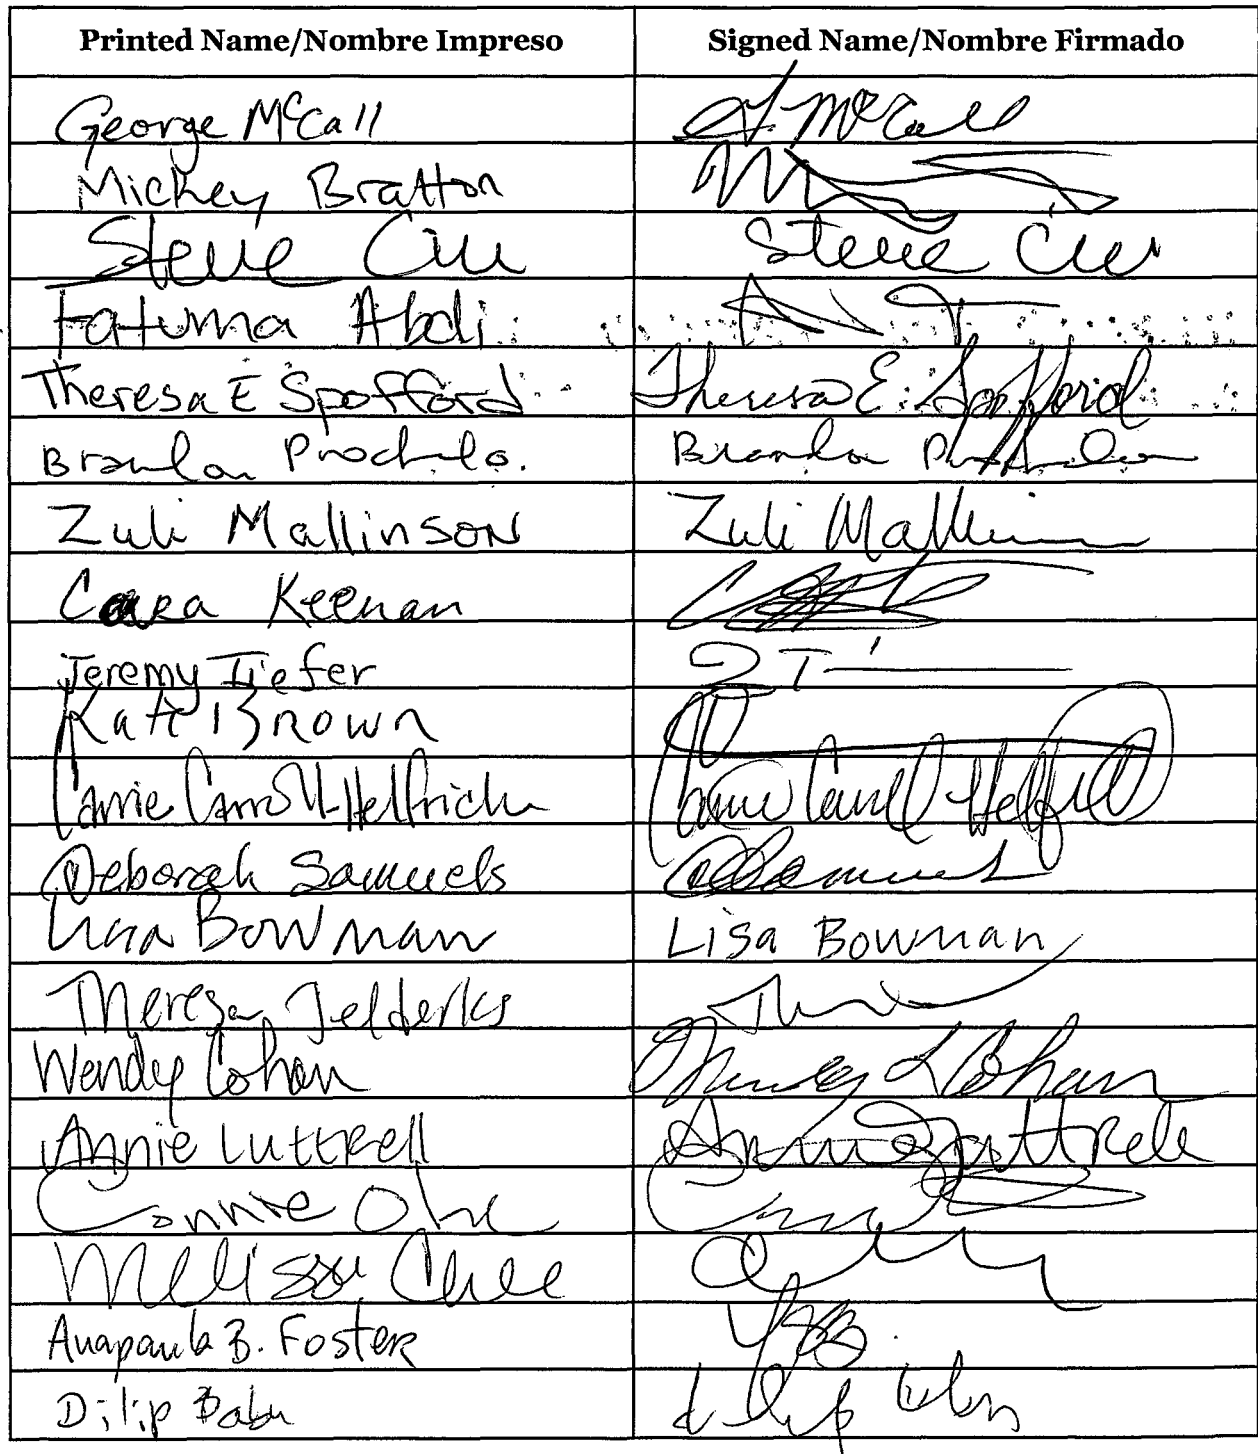 Printed Name/Nombre Impreso Signed Name/Nombre Firmado
George McCall G. McCall
Mickey Bratton
Steve Ciu Steve Ciu
Fatuma Abdi
Theresa E Spofford Theresa E. Spofford
Brandon Brandon
Zuli Mallinson Zuli
Cara Keenan
Jeremy Tiefer
Brown
Carrie Carroll-Helfrich Carrie Carroll-Helfrich
Deborah Samuels Samuels
Lisa Bowman Lisa Bowman
Theresa Jelderks
Wendy Cohan Wendy L Cohan
Annie Luttrell Annie Luttrell
Connie
Melissa Chee
Anapaula B. Foster
Dilip Babu dilip babu